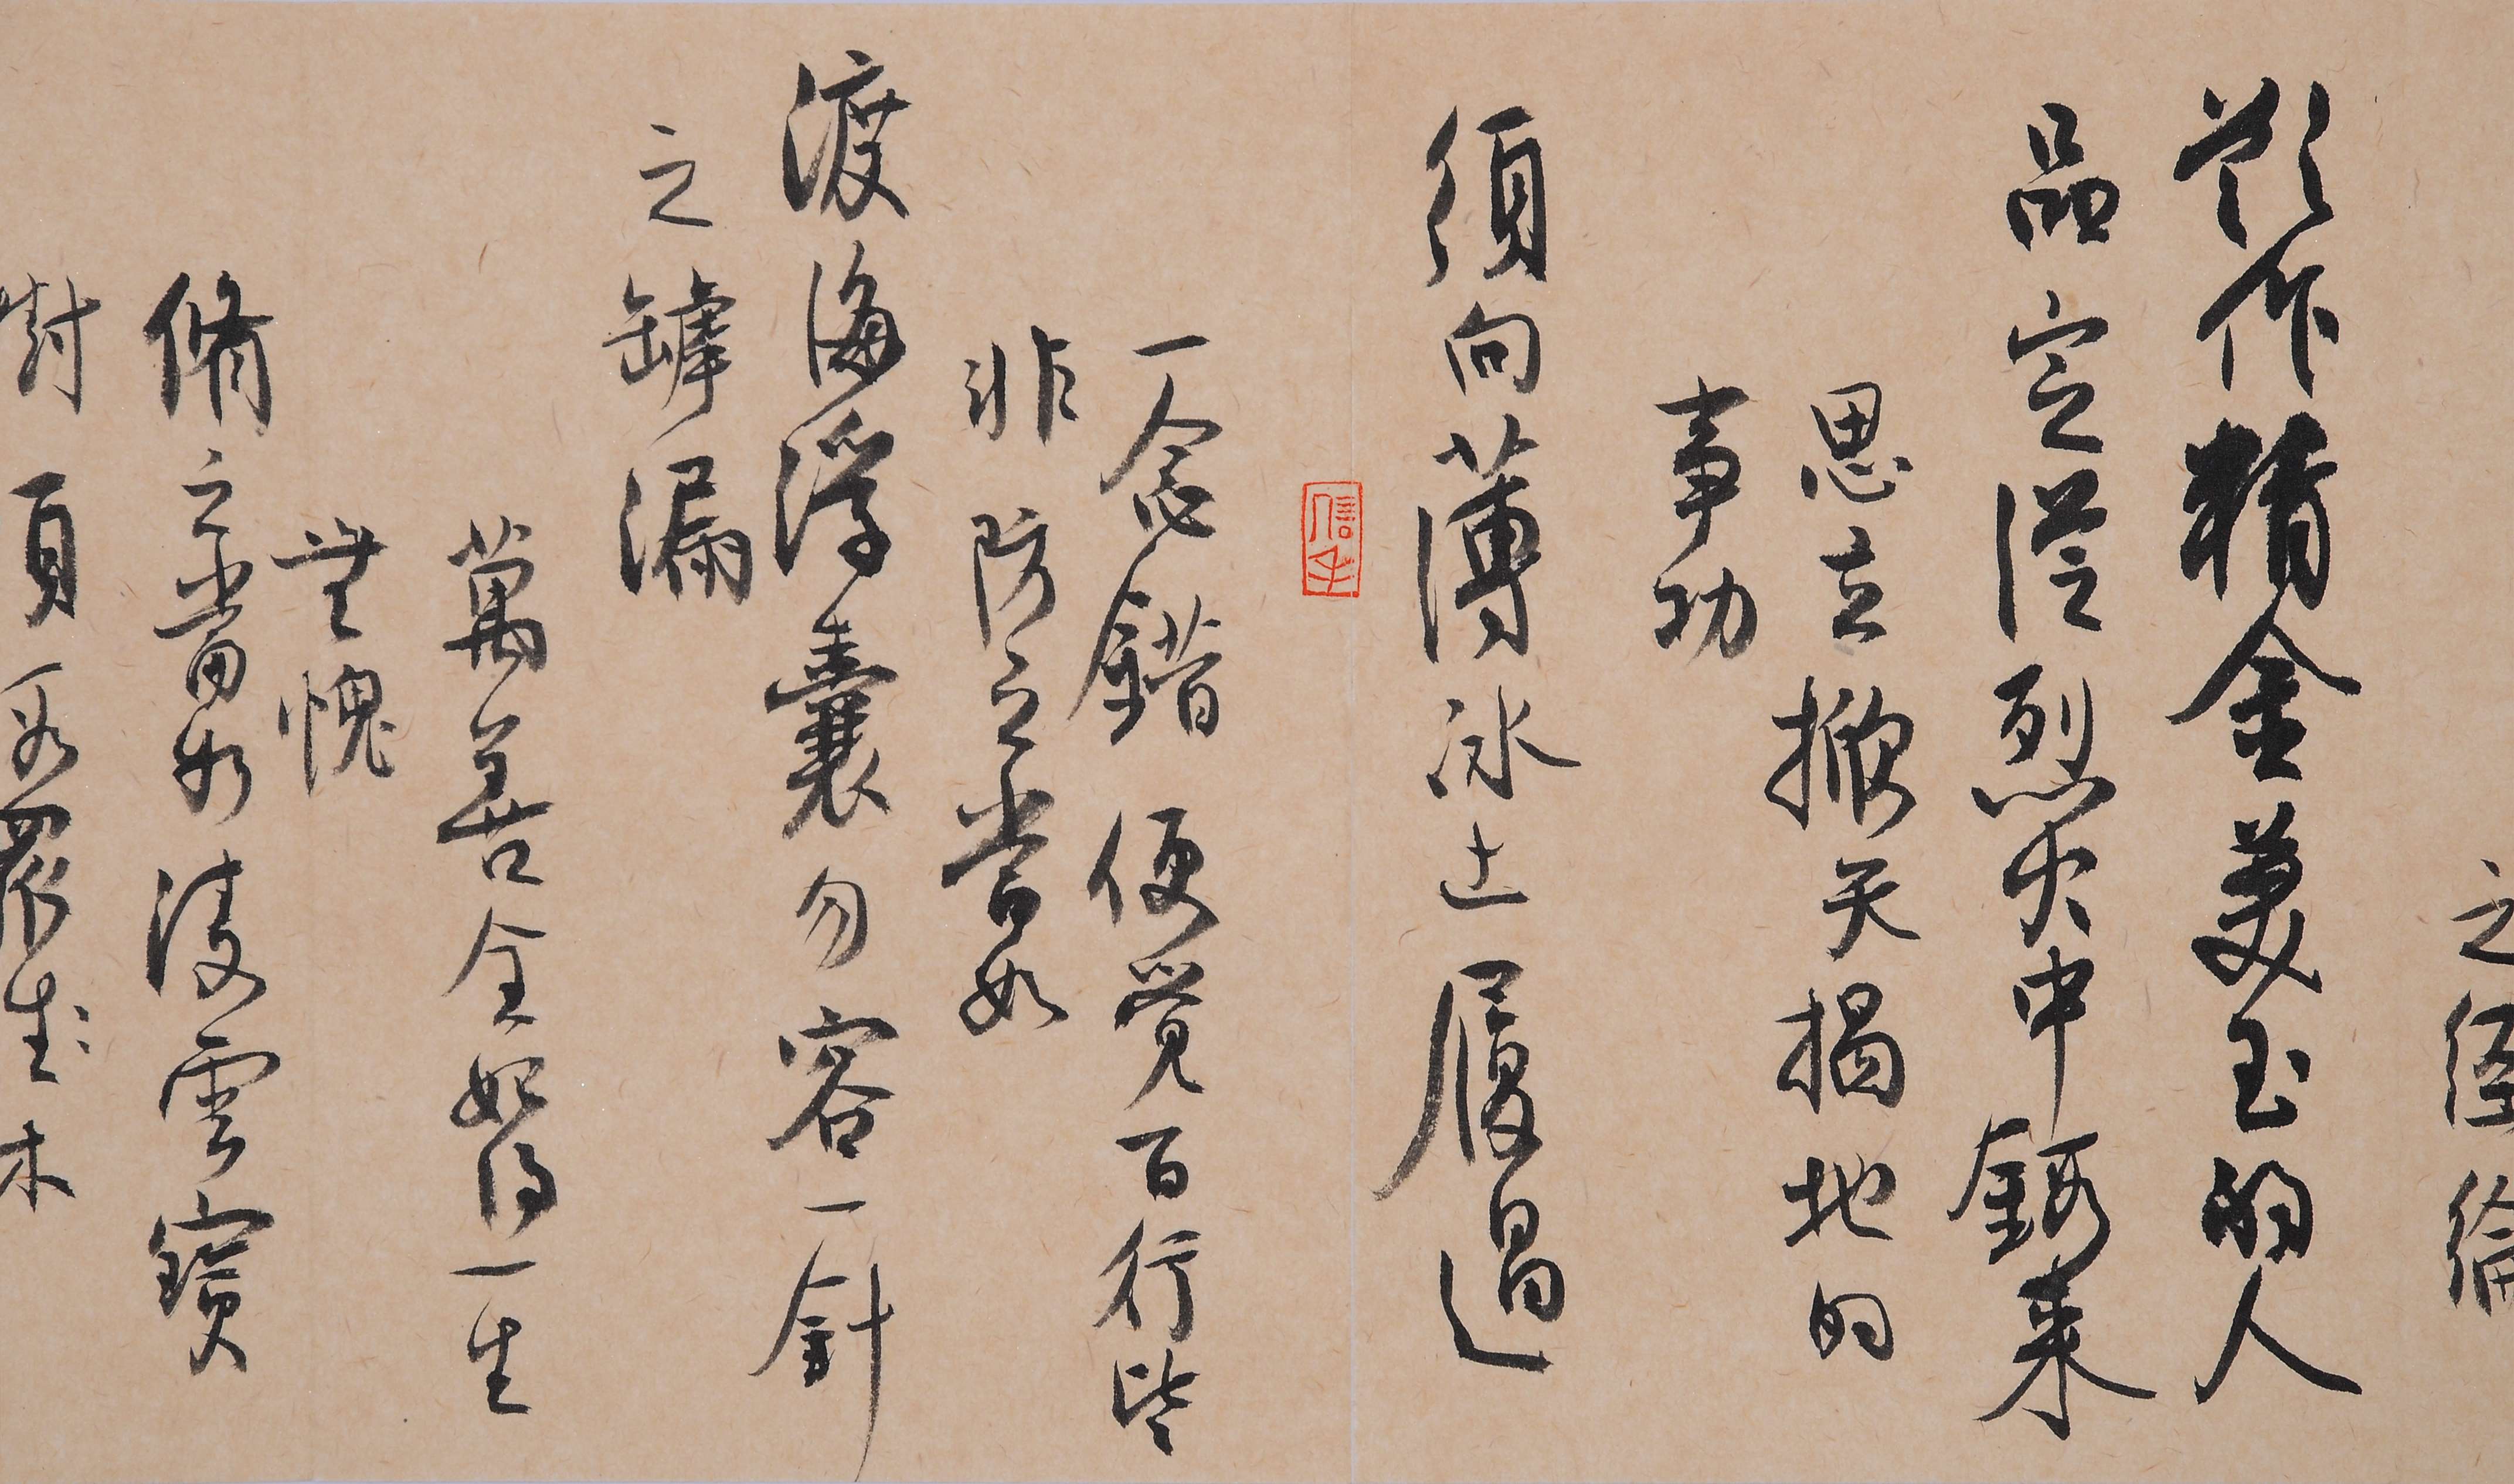 之經綸
欲作精金美玉的人
品定從烈火中鍛来
思立掀天揭地的
事功
須向薄冰上履過
信手
一念錯便覚百行皆
非防之當如
渡海浮囊勿容一針
之罅漏
萬善全始得一生
無愧
脩之當如凌雲寶
樹須假眾木